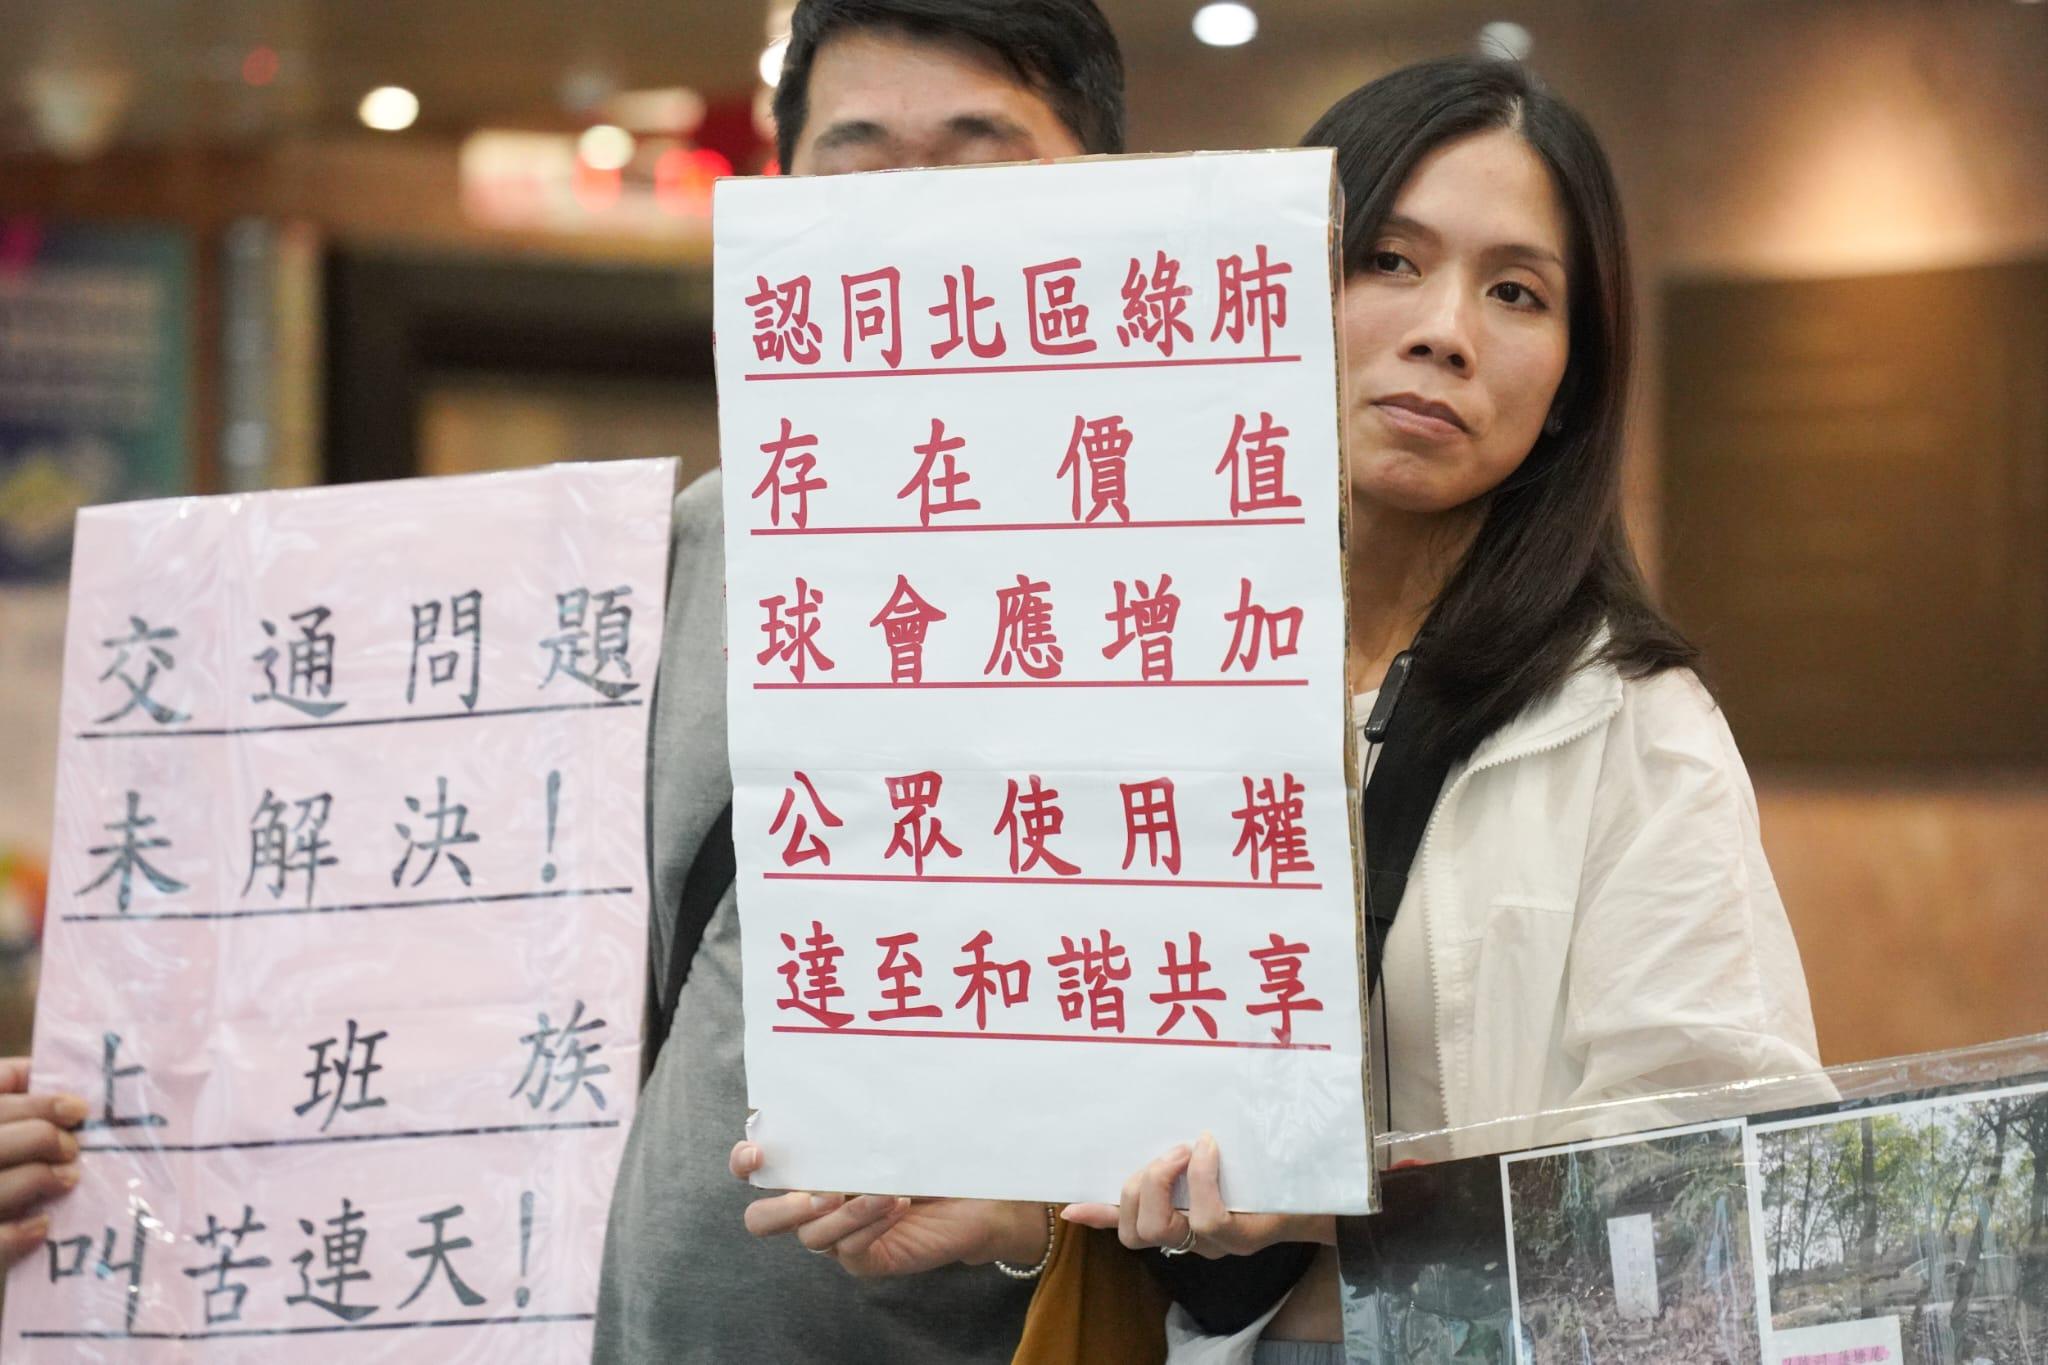 交通問題
未解決！
上班族
叫苦連天！
認同北區綠肺
存在價值
球會應增加
公眾使用權
達至和諧共享